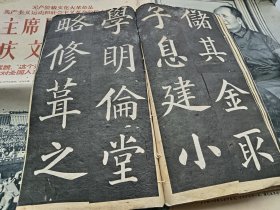 儲其金取
子息建小
學明倫堂
略修葺之
主席
庆文